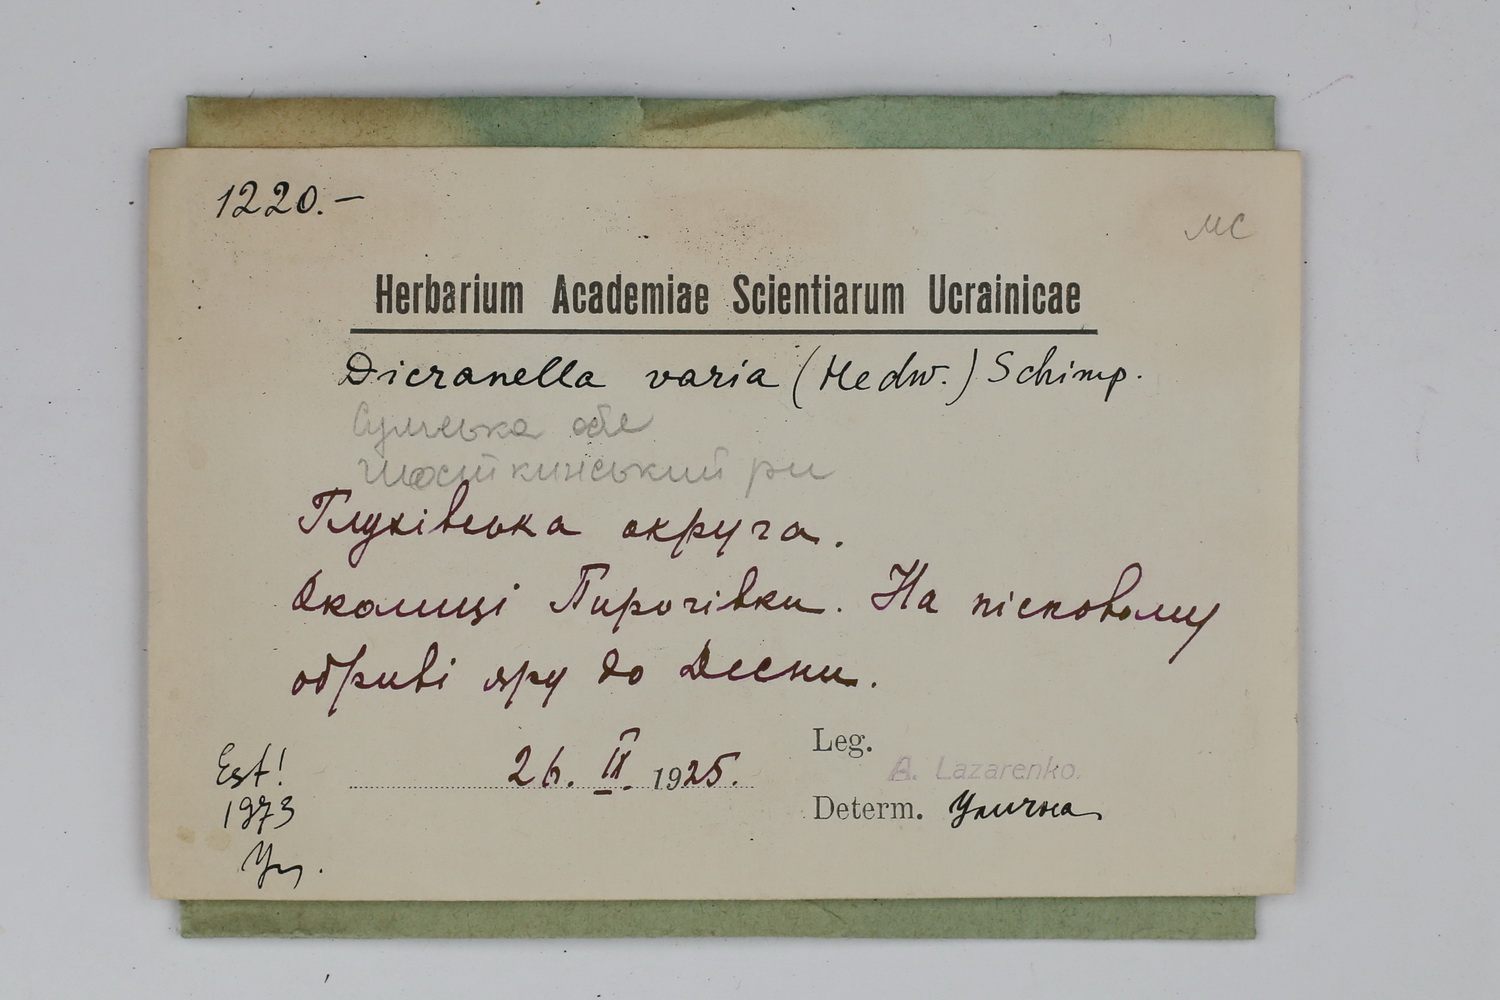 1220.–
МС
Herbarium Academiae Scientiarum Ucrainicae
Dicranella varia (Hedw.) Schimp.
Сумська обл
Шосткинський рн
Глухівська округа.
Околиці Пирогівки. На пісковому
обриві яру до Десни.
26. IX. 1925.
Leg.
A. Lazarenko.
Determ. Улична
Est!
1973
Ул.